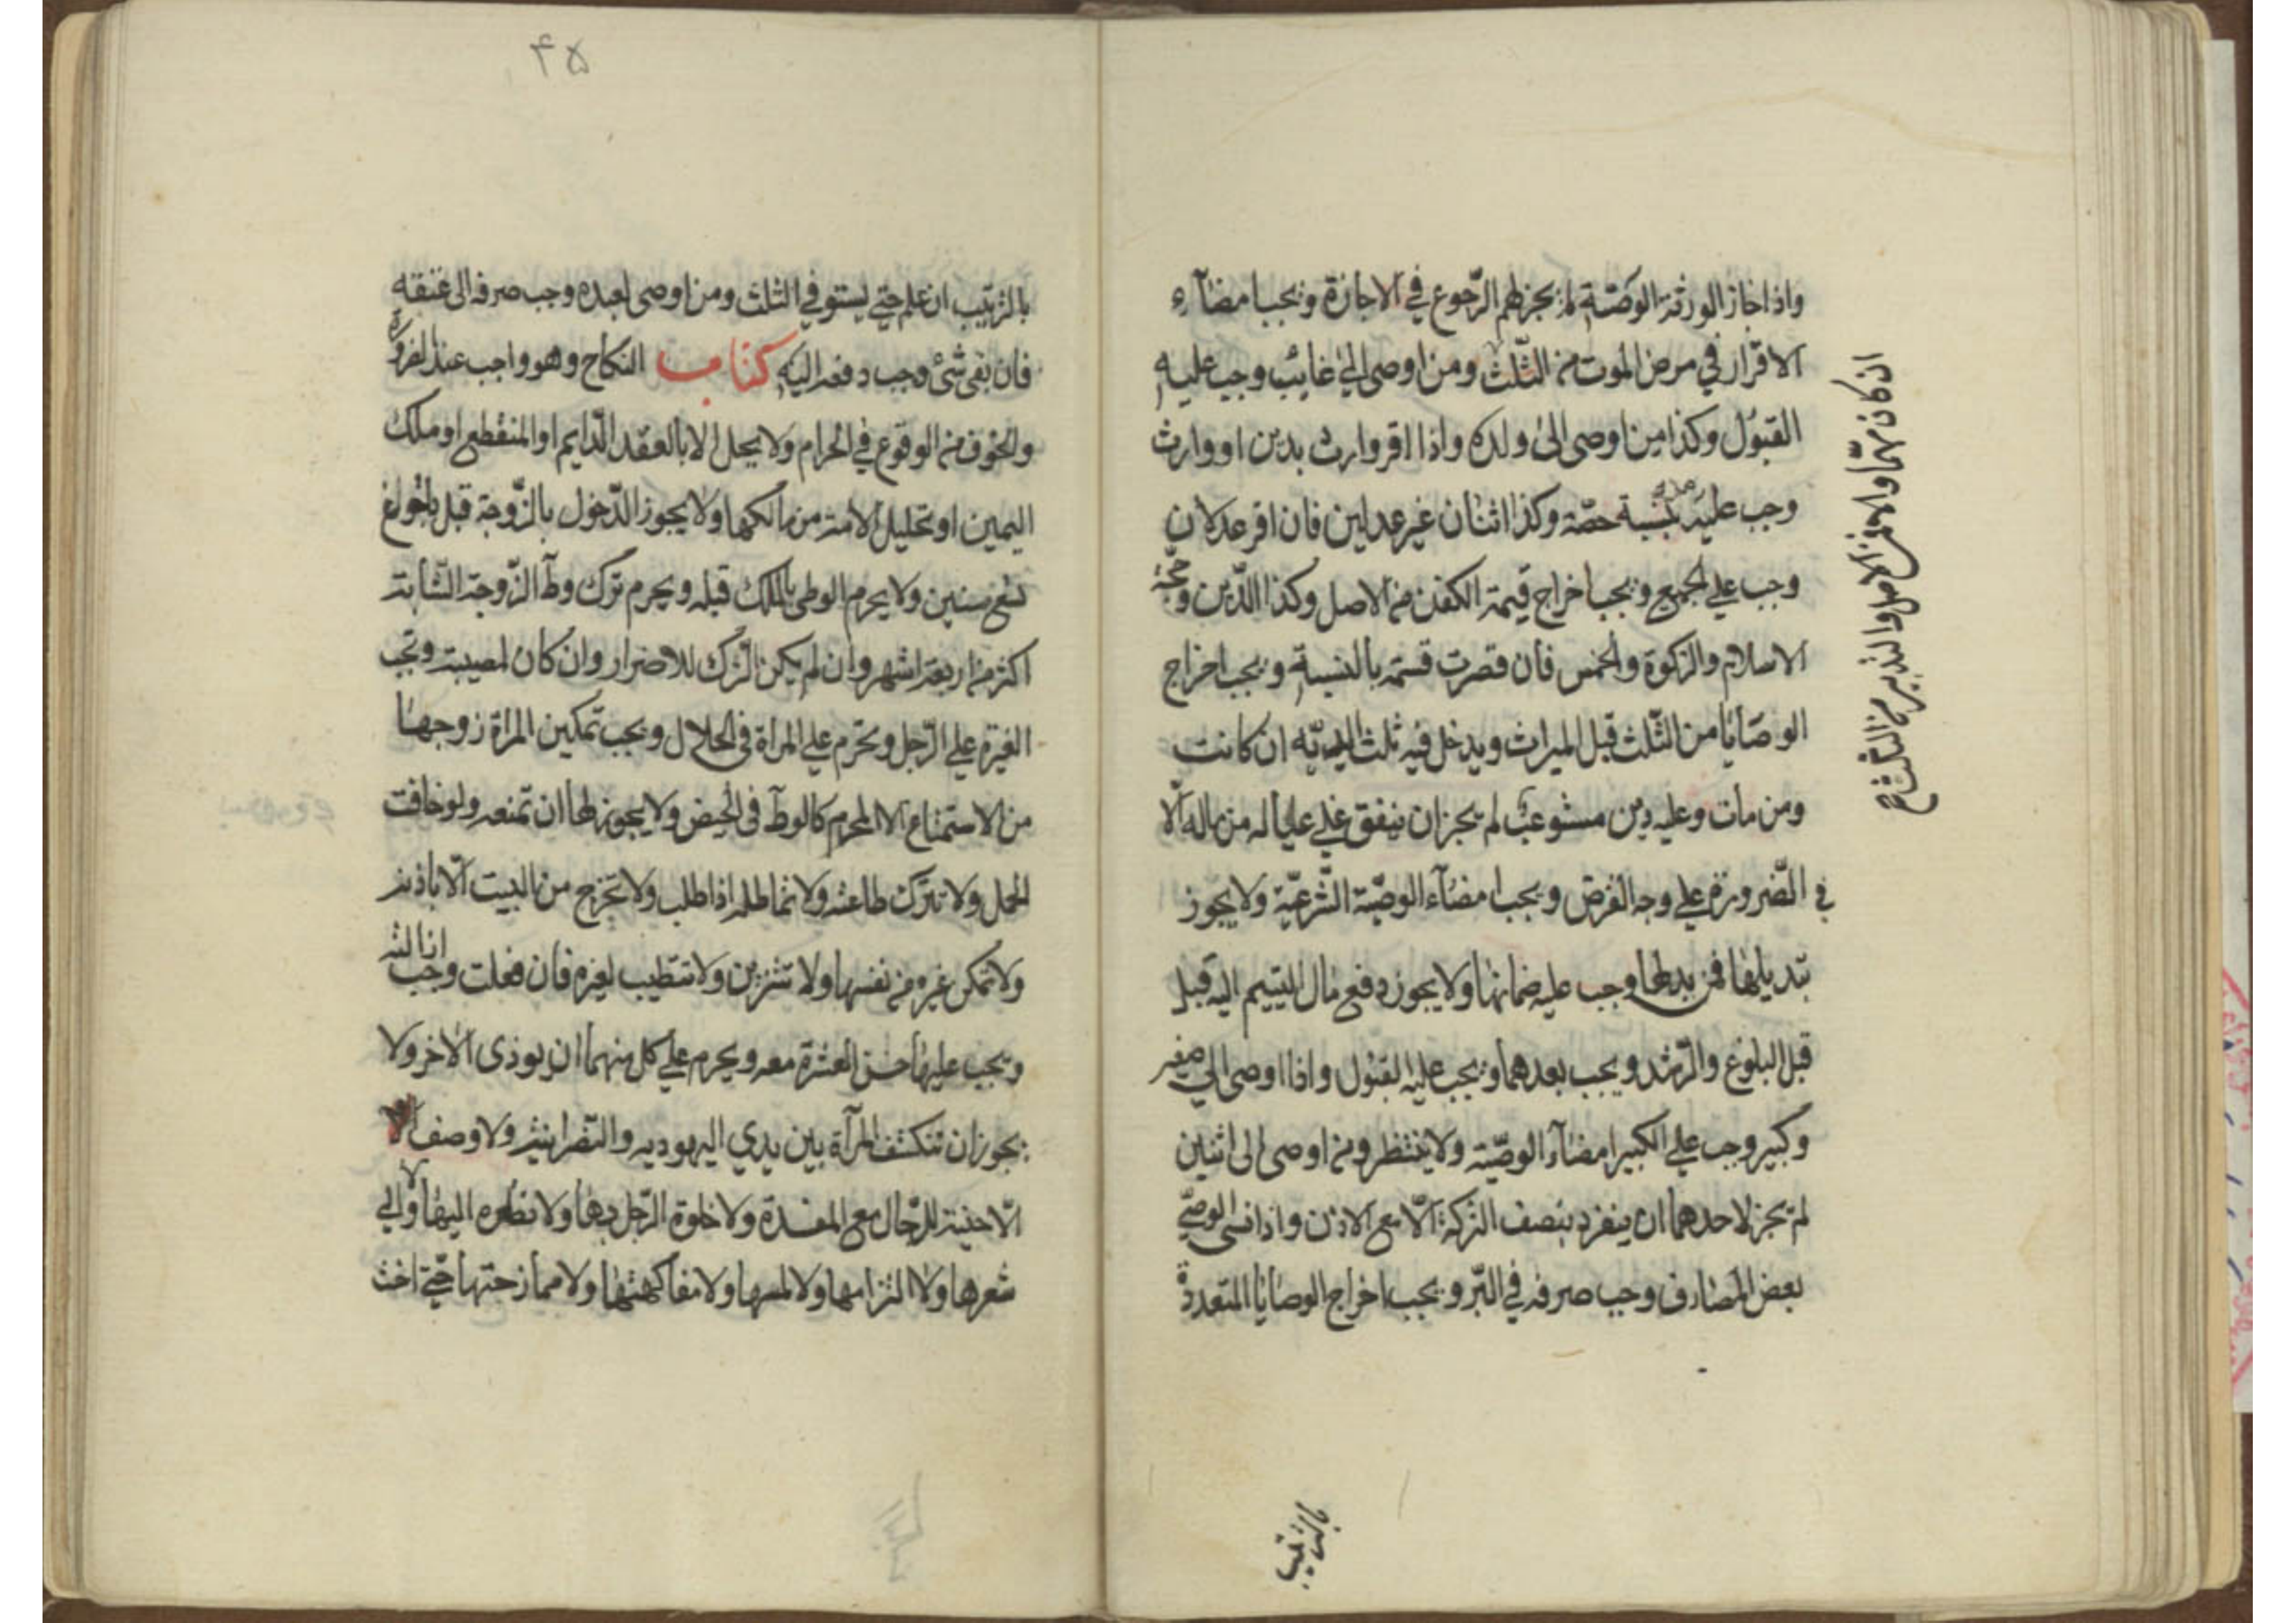 واذا اجاز الورثة الوصّية لم يجز لهم الرّجوع في الاجازة ويجب امضآء
الاقرار في مرض الموت من الثّلث ومن اوصى الى غايب وجب عليه
القبول وكذا من اوصى الى ولده واذا اقر وارث بدين او وارث
وجب عليه بنسبة حصّته وكذا اثنان غير عدلين فان اقر عدلان
وجب على الجميع ويجب اخراج قيمة الكفن من الاصل وكذا الدّين وحجّة
الاسلام والزكوة والخمس فان قصرت قسمّت بالنسبة ويجب اخراج
الوصايا من الثّلث قبل الميراث ويدخل فيه ثلث الديّه ان كانت
ومن مات وعليه دين مستوعب لم يجز ان ينفق على عياله من ماله الّا
في الضّرورة على وجه القرض ويجب امضآء الوصيّة الشّرعيّة ولا يجوز
تبديلها فمن بدلها وجب عليه ضمانها ولا يجوز دفع مال اليتيم اليه قبل
قبل البلوغ والرّشد ويجب بعدهما ويجب عليه القبول واذا اوصى الى صغير
وكبير وجب على الكبير امضآء الوصيّة ولا ينتظر ومن اوصى الى اثنين
لم يجز لاحدهما ان ينفرد بنصف التركة الّا مع الاذن واذا نسى الوصيّ
بعض المصارف وجب صرفه في البّر ويجب اخراج الوصايا المتعددة
بالترتيب
بالترتيب ان علم حتى يستوفي الثلث ومن اوصى لعبده وجب صرفه الى عتقه
فان بقى شئ وجب دفعه اليه كتاب النكاح وهو واجب عند الضرورة
والخوف من الوقوع في الحرام ولا يحل الا بالعقد الدّايم او المنقطع او ملك
اليمين او تحليل الامة من مالكها ولا يجوز الدّخول بالزّوجة قبل بلوغ
تسع سنين ولا يحرم الوطى بالملك قبله ويحرم ترك وطآ الزّوجة الشّابة
اكثر من اربعة اشهر وان لم يكن الترك للاضرار وان كان لمصيبة وتجب
الغيرة على الرّجل وتحرم على المراة في الحلال ويجب تمكين المراة زوجها
من الاستمتاع الا المحرم كالوطآ في الحيض ولا يجوز لها ان تمنعه ولو خافت
الحمل ولا تترك طاعته ولا تماطله اذا طلب ولا تخرج من البيت الّا باذنه
ولا تمكن غيره من نفسها ولا تتزين ولا تتطيب لغيره فان فعلت وجب ازالته
ويجب عليها حسن العشرة معه ويحرم على كل منهما ان يوذى الاخر ولا
يجوز ان تنكشف المرآة بين يدي اليهوديه والنصرانية ولا وصف الا
الّاجنبية للرّجال مع المفسدة ولا خلوة الرّجل بها ولا نظره اليها ولا الى
شعرها ولا التزامها ولا لمسها ولا مفاكهتها ولا ممازحتها حتى اخت
۴۵